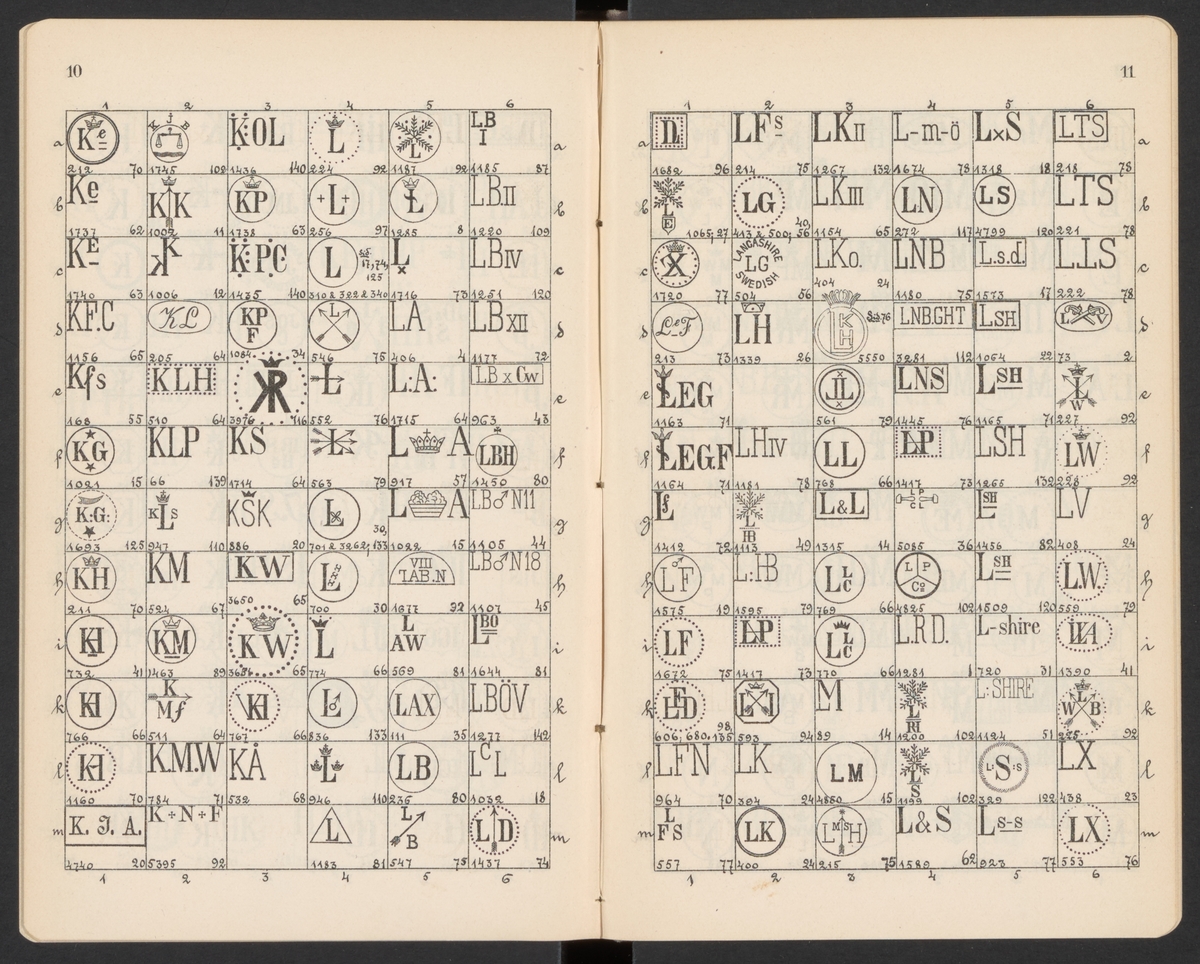 10
1 2 3 4 5 6
a Ke K J B K:OL L L LB I a
212 70 1745 102 1436 140 224 92 1187 92 1185 87
b Ke KK KP +L+ L LB.II b
1737 62 1002 11 1738 63 256 97 1285 8 1220 109
c KE K K K:P.C L L x LBIV c
1740 63 1006 12 1435 140 310 & 322 & 340 17,74, 125 1716 73 1251 120
d KF:C KL KP F L LA LB XII d
1156 65 205 64 1084 34 546 75 406 4 1177 72
e Kfs KLH KR L L:A: LB x Cw e
168 55 510 64 3976 116 552 76 1715 64 963 43
f KG KLP KS L L A LBH f
1021 15 66 139 1714 64 563 79 917 57 1450 80
g K:G: K L S KŠK L L A LB♂N11 g
1693 125 947 110 886 20 701 & 3262, 30, 133 1022 15 1105 44
h KH KM KW L HHH VIII LAB.N LB♂N18 h
211 70 524 67 3650 65 700 30 1677 92 1107 45
i KH KM KW L L AW LBO i
732 41 1463 89 3656 65 774 66 569 81 1644 81
k KH K Mf KH L♂ LAX LBÖV k
766 66 511 64 767 66 836 133 111 35 1277 142
l KH K.M.W KÅ L LB LCL l
1160 70 784 71 532 68 946 110 236 80 1032 18
m K. J. A. K+N+F L L B LD m
4740 20 5395 92 1183 81 547 75 1437 74
1 2 3 4 5 6
11
1 2 3 4 5 6
a LFs LKII L-m-ö LxS LTS a
1682 96 214 75 1267 132 1674 78 1318 18 218 78
b L E LG LKIII LN LS LTS b
1065, 27 413 & 500, 40, 56 1154 65 272 117 4799 120 221 78
c X LANCASHIRE LG SWEDISH LKo. LNB L.s.d. L.LS c
1720 77 504 56 404 24 1180 75 1573 17 222 78
d LeF LH LKHH LNB.GHT LSH L V d
213 73 1339 26 5550 3281 112 1064 22 73 2
e LEG JL LNS LSH L W e
1163 71 561 79 1445 76 1165 71 227 92
f LEG.F LHIV LL LP LSH LW f
1164 71 1181 78 768 66 1417 73 1265 132 228 92
g Lf L IB L&L L P C L LSH LV g
1412 72 1113 49 1315 14 5085 36 1456 82 408 24
h LF L:HB LLC L P Co LSH LW. h
1575 19 1595 79 769 66 4825 102 1509 120 559 79
i LF LP LLC L.R D. L-shire i
1672 75 1417 73 770 66 1281 1 720 31 1390 41
k LED LI LM L RI L:SHIRE L W B k
606, 680, 98, 135 593 94 89 14 1200 102 1124 51 275 92
l LFN LK LM L S L:S:S LX l
964 70 394 24 4880 15 1199 102 329 122 438 23
m L F S LK L MS H L&S Ls-s LX m
557 77 400 24 215 75 1589 62 923 77 553 76
1 2 3 4 5 6